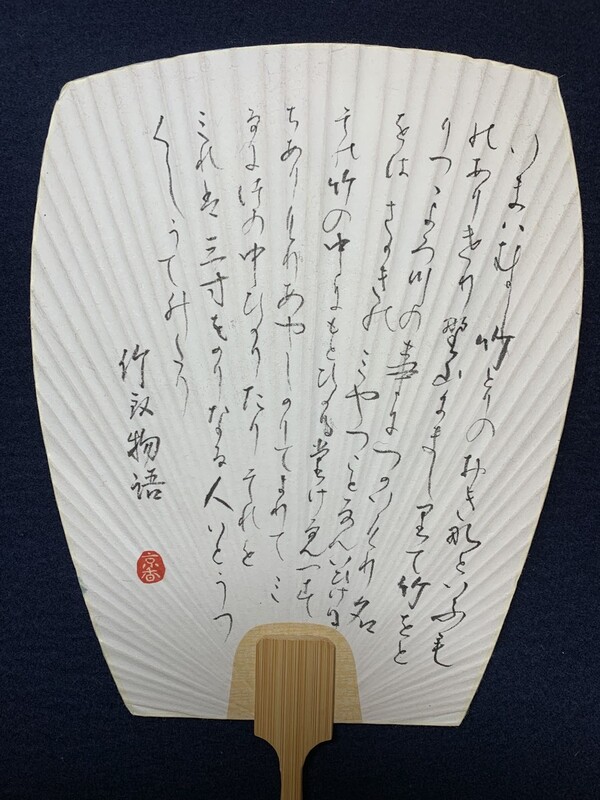 いまはむかし竹とりのおきなといふも
のありけり野山にましりて竹をと
りつゝよろつの事につかひけり名
をはさかきのみやつことなんいひける
その竹の中にもとひかるたけなん一す
ちありけりあやしかりてよりてみ
るにつゝの中ひかりたりそれを
みれは三寸はかりなる人いとうつ
くしうてゐたり
竹取物語
京香